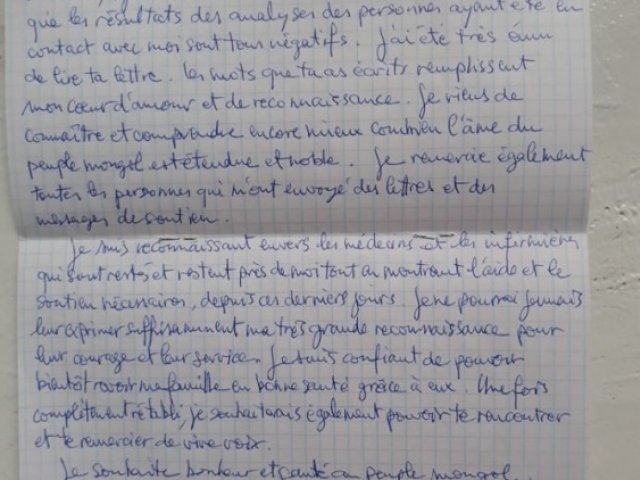 que les résultats des analyses des personnes ayant été en
contact avec moi sont tous négatifs. J'ai été très ému
de lire ta lettre. Les mots que tu as écrits remplissent
mon cœur d'amour et de reconnaissance. Je viens de
connaître et comprendre encore mieux combien l'âme du
peuple mongol est étendue et noble. Je remercie également
toutes les personnes qui m'ont envoyé des lettres et des
messages de soutien.
Je suis reconnaissant envers les médecins et les infirmières
qui sont restés et restent près de moi tout en montrant l'aide et le
soutien nécessaires, depuis ces derniers jours. Je ne pourrai jamais
leur exprimer suffisamment ma très grande reconnaissance pour
leur courage et leur service. Je suis confiant de pouvoir
bientôt revoir ma famille en bonne santé grâce à eux. Une fois
complètement rétabli, je souhaiterais également pouvoir te rencontrer
et te remercier de vive voix.
Je souhaite bonheur et santé au peuple mongol.